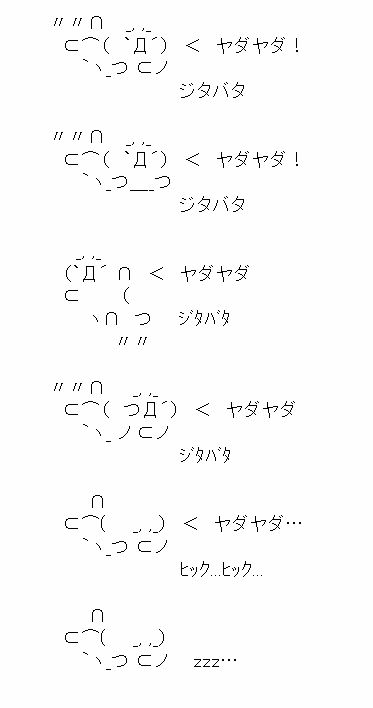 〃〃∩ _, ,_
⊂⌒( `Д´) < ヤダヤダ!
`ヽ_つ ⊂ノ
ジタバタ
〃〃∩ _, ,_
⊂⌒( `Д´) < ヤダヤダ!
`ヽ_つ__つ
ジタバタ
_, ,_
(`Д´ ∩ < ヤダヤダ
⊂ (
ヽ∩ つ ジタバタ
〃〃
〃〃∩ _, ,_
⊂⌒( つД´) < ヤダヤダ
`ヽ_ノ ⊂ノ
ジタバタ
∩
⊂⌒( _, ,_) < ヤダヤダ…
`ヽ_つ ⊂ノ
ヒック...ヒック...
∩
⊂⌒( _, ,_)
`ヽ_つ ⊂ノ zzz…